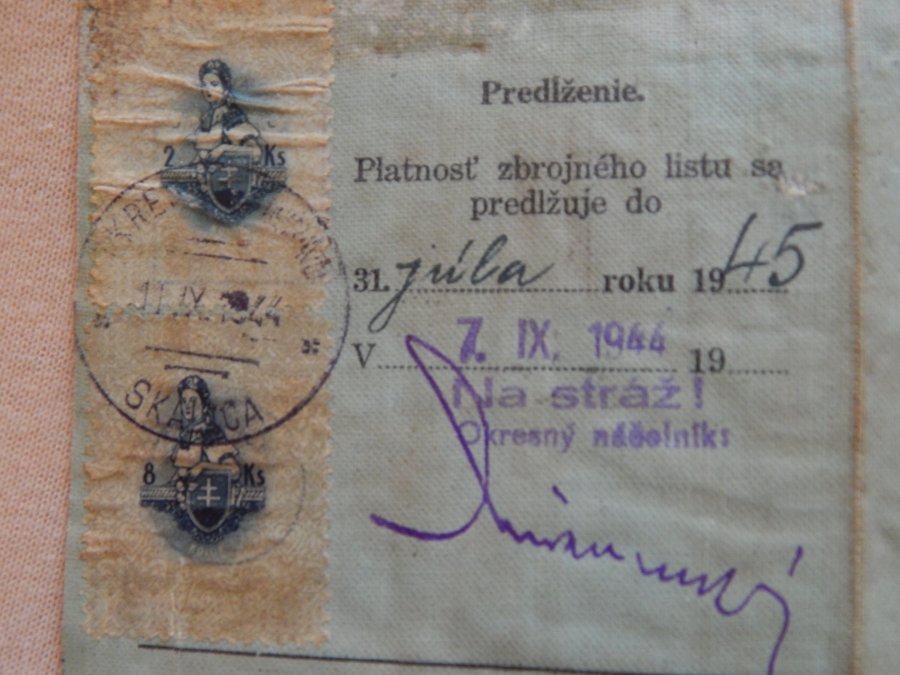 Predĺženie.
Platnosť zbrojného listu sa
predlžuje do
31. júla roku 1945
V 7. IX. 1944 19
Na stráž!
Okresný náčelník:
2 Ks
IX. 1944
SKALICA
8 Ks